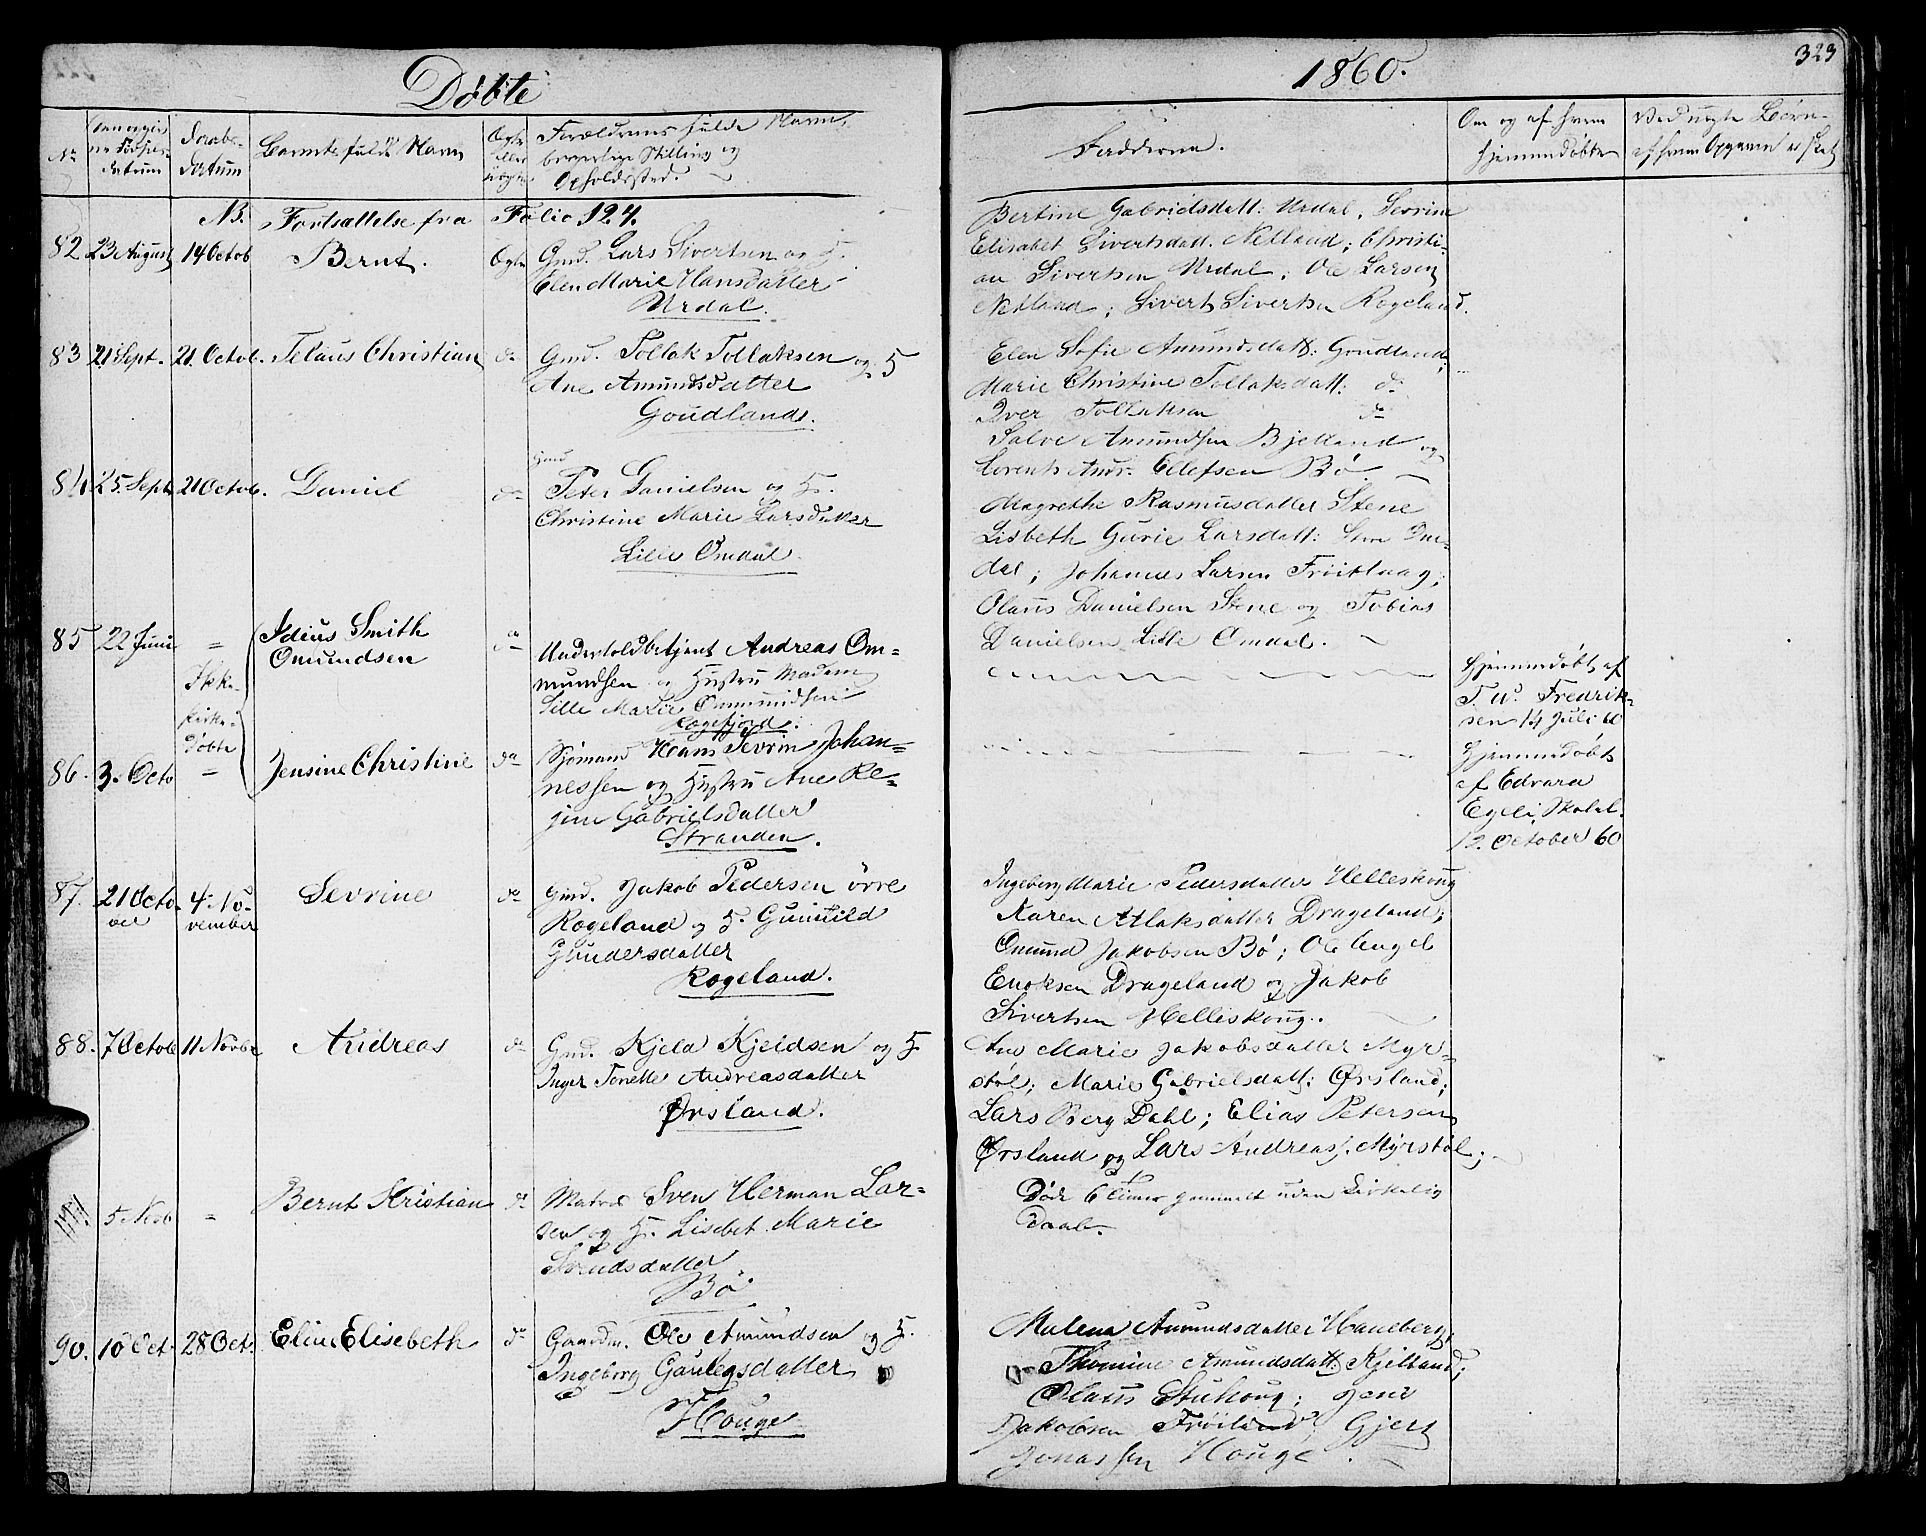 Døbte
1860.
323
No
Døbte-
Datum
Barnets fulde Navn
Ægte
eller
Forældrenes fulde Navn,
borgerlige Stilling og
Opholdssted.
Fadderne.
Om og af hvem
hjemmedøbte
Ved uægte Børn
af hvem Opgaven er skeet
NB. Fortsættelse fra Folio 124.
82 23 August 14 Octob Bernt. Ægte
Gmd. Lars Sivertsen og H.
Elen Marie Hansdatter
Urdal.
Bertine Gabrielsdatt: Urdal, Sevrine
Elisabet Sivertsdatt. Netland; Christi-
an Sivertsen Urdal; Ole Larsen
Netland; Sivert Sivertsen Rogeland.
83 21 Sept. 21. Octob. Telaus Christian do
Gmd. Tollak Tollaksen og H
Ane Amundsdatter
Goudland.
Elen Sofie Amundsdatt: Goudland;
Marie Christine Tollaksdatt. do
Iver Tollaksen do
Salve Amundsen Bjelland og
Lorents Andr. Edlefsen Bø
84 25. Sept 21 Octob. Daniel do
Gmd
Peter Danielsen og H.
Christine Marie Larsdatter
Lille Omdal.
Magrethe Rasmusdatter Stene
Lisbeth Gurie Larsdatt: Store Om-
dal; Johannes Larsen Frøitlaag;
Olaus Danielsen Stene og Tobias
Danielsen Lille Omdal.
85 22 Juni = Idius Smith
Omundsen do
Ikke
kirke-
døbte
Undertoldbetjent Andreas Om-
mundsen og Hustru Madam
Sille Marie Ommundsen
Rægefjord.
Hjemmedøbt af
T. W. Fredrik-
sen 14 Juli 60
86. 3. Octo = Jensine Christine do
Sjømand Hans Sevrin Johan-
nessen og Hustru Ane Re-
jine Gabrielsdatter
Stranden.
Hjemmedøbt
af Edvard
Egeli, Skolel.
12. October 60
87. 21 Octo-
ber 4. No-
vember Sevrine do
Gmd. Jakob Pedersen örre
Rogeland og H. Gunnild
Gundersdatter
Rogeland.
Ingeborg Marie Pedersdatter Helleskoug
Karen Atlaksdatter Drageland;
Omund Jakobsen Bø; Ole Engel
Enoksen Drageland og Jakob
Sivertsen Helliskoug.
88. 7 Octob 11 Novbr Andreas do
Gmd. Kjeld Kjeldsen og H
Inger Tonette Andreasdatter
Ørsland.
Ane Marie Jakobsdatter Myr-
støl; Marie Gabrielsdatt: Ørsland;
Lars Berg Dahl; Elias Petersen
Ørsland og Lars Andreas. Myrstøl;
5 Nov = Bernt Kristian do
Matros Sven Herman Lar-
sen og H. Lisebet Marie
Bø
Død 6 Timer gammelt uden kirkelig
Daab.
90. 10 Oct. 28 Oct. Eline Elisebeth do
Gaardm. Ole Amundsen og H.
Ingeborg Gautegsdatter
Houge
Malena Amundsdatter Haneberg,
Thomine Amundsdatt: Kjelland;
Olaus Stuhoug; Jens
Jakobsen Frøiland, Gjert
Jonassen Houge.